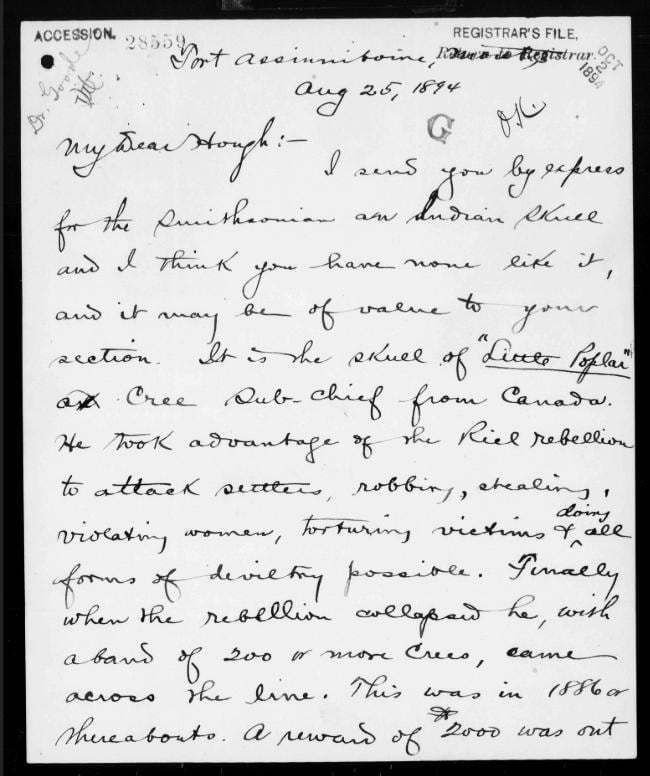 ACCESSION.
28559
REGISTRAR'S FILE,
Return to Registrar.
OCT
25
1894
Dr. Goode
Fort Assinniboine,
Aug 25, 1894
G
OK
My Dear Hough:-
I send you by express
for the Smithsonian an Indian Skull
and I think you have none like it,
and it may be of value to your
section. It is the skull of "Little Poplar"
a Cree Sub-chief from Canada.
He took advantage of the Riel rebellion
to attack settlers, robbing, stealing,
violating women, torturing victims & doing all
forms of deviltry possible. Finally
when the rebellion collapsed he, with
a band of 200 or more Crees, came
across the line. This was in 1886 or
thereabouts. A reward of $2000 was out